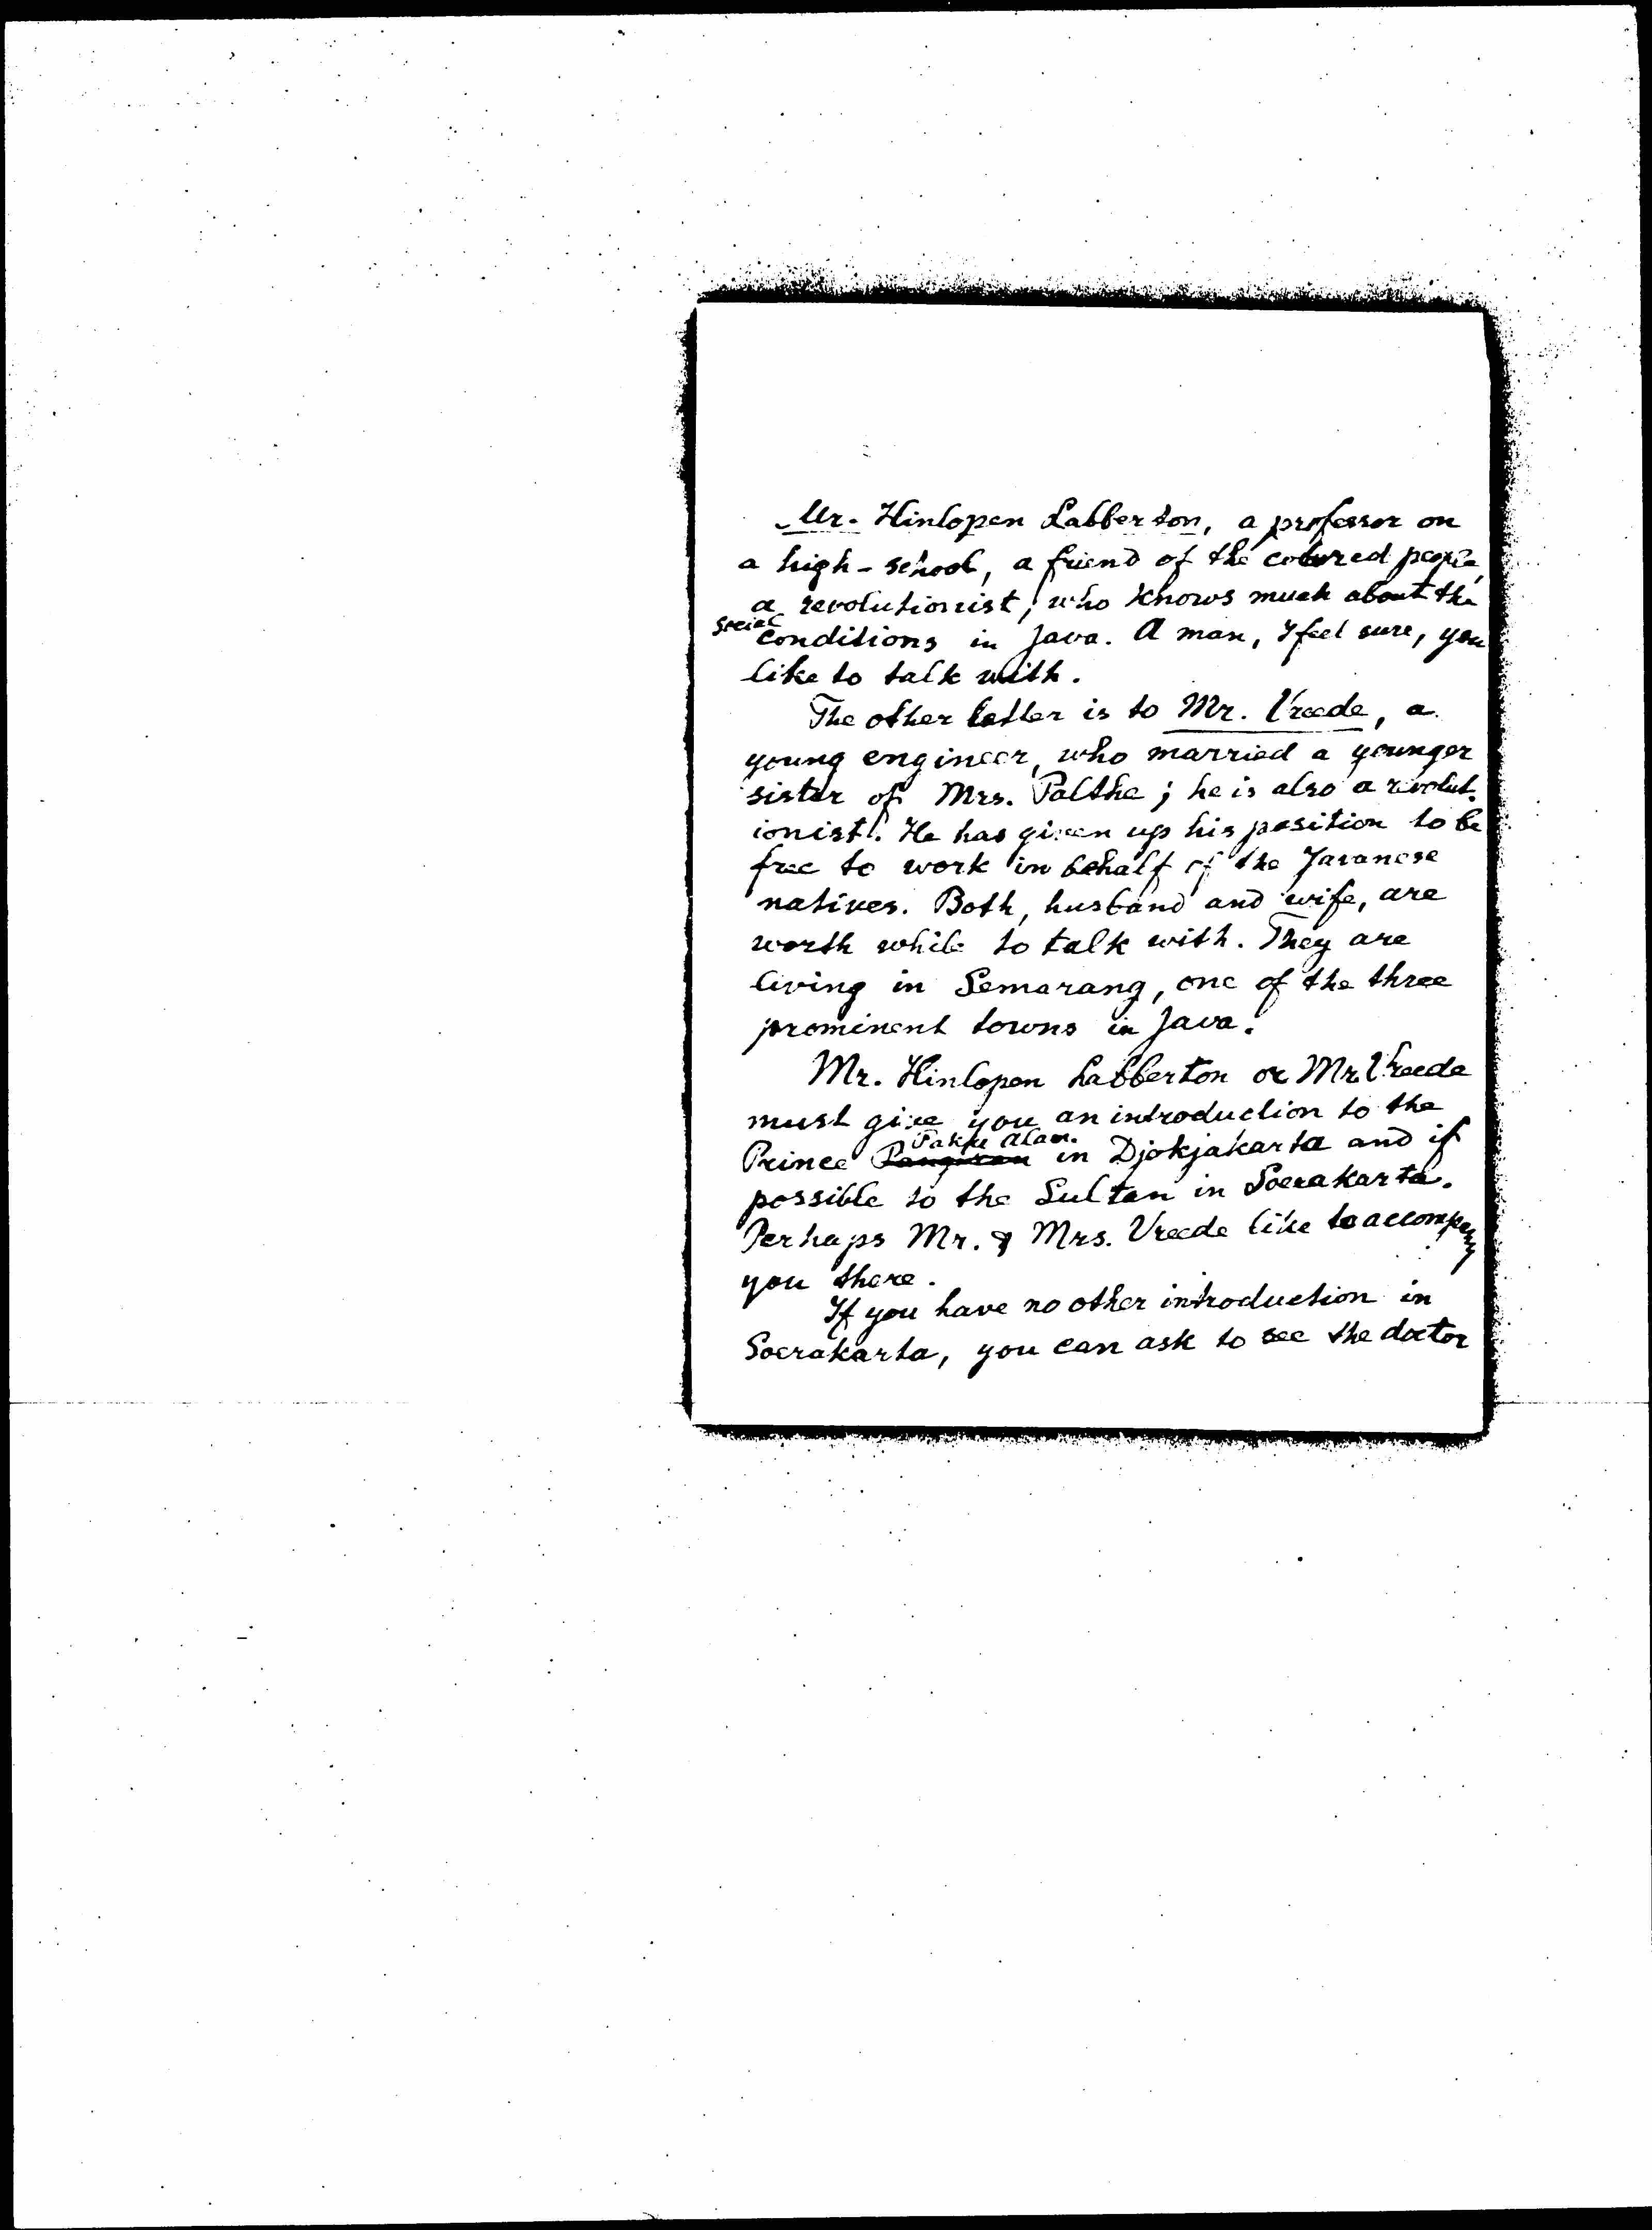 Mr. Hinlopen Labberton, a professor on
a high-school, a friend of the colored people,
a revolutionist, who knows much about the
social conditions in Java. A man, I feel sure, you
like to talk with.
The other letter is to Mr. Vreede, a
young engineer, who married a younger
sister of Mrs. Palthe; he is also a revolut-
ionist. He has given up his position to be
free to work in behalf of the Javanese
natives. Both, husband and wife, are
worth while to talk with. They are
living in Semarang, one of the three
prominent towns in Java.
Mr. Hinlopen Labberton or Mr. Vreede
must give you an introduction to the
Pakku Alam.
Prince Pangeran in Djokjakarta and if
possible to the Sultan in Soerakarta.
Perhaps Mr. & Mrs. Vreede like to accompany
you there.
If you have no other introduction in
Soerakarta, you can ask to see the doctor